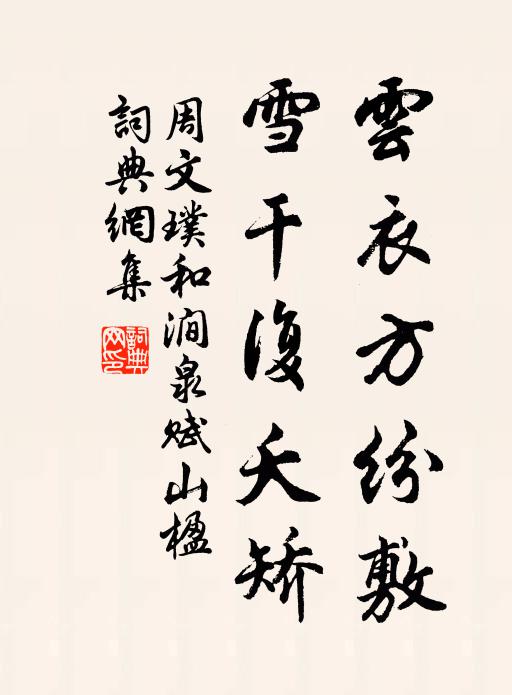 雲衣方紛敷
雪干復夭矯
周文璞和澗泉賦山楹
詞典網集
詞典網印